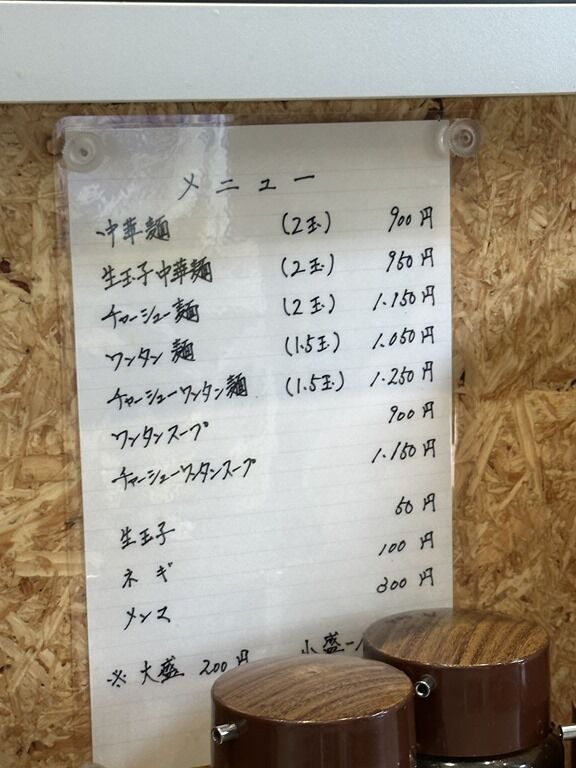 メニュー
中華麺 (2玉) 900円
生玉子中華麺 (2玉) 950円
チャーシュー麺 (2玉) 1.150円
ワンタン麺 (1.5玉) 1.050円
チャーシューワンタン麺 (1.5玉) 1.250円
ワンタンスープ 900円
チャーシューワンタンスープ 1.150円
生玉子 50円
ネギ 100円
メンマ 300円
※大盛 200円 小盛